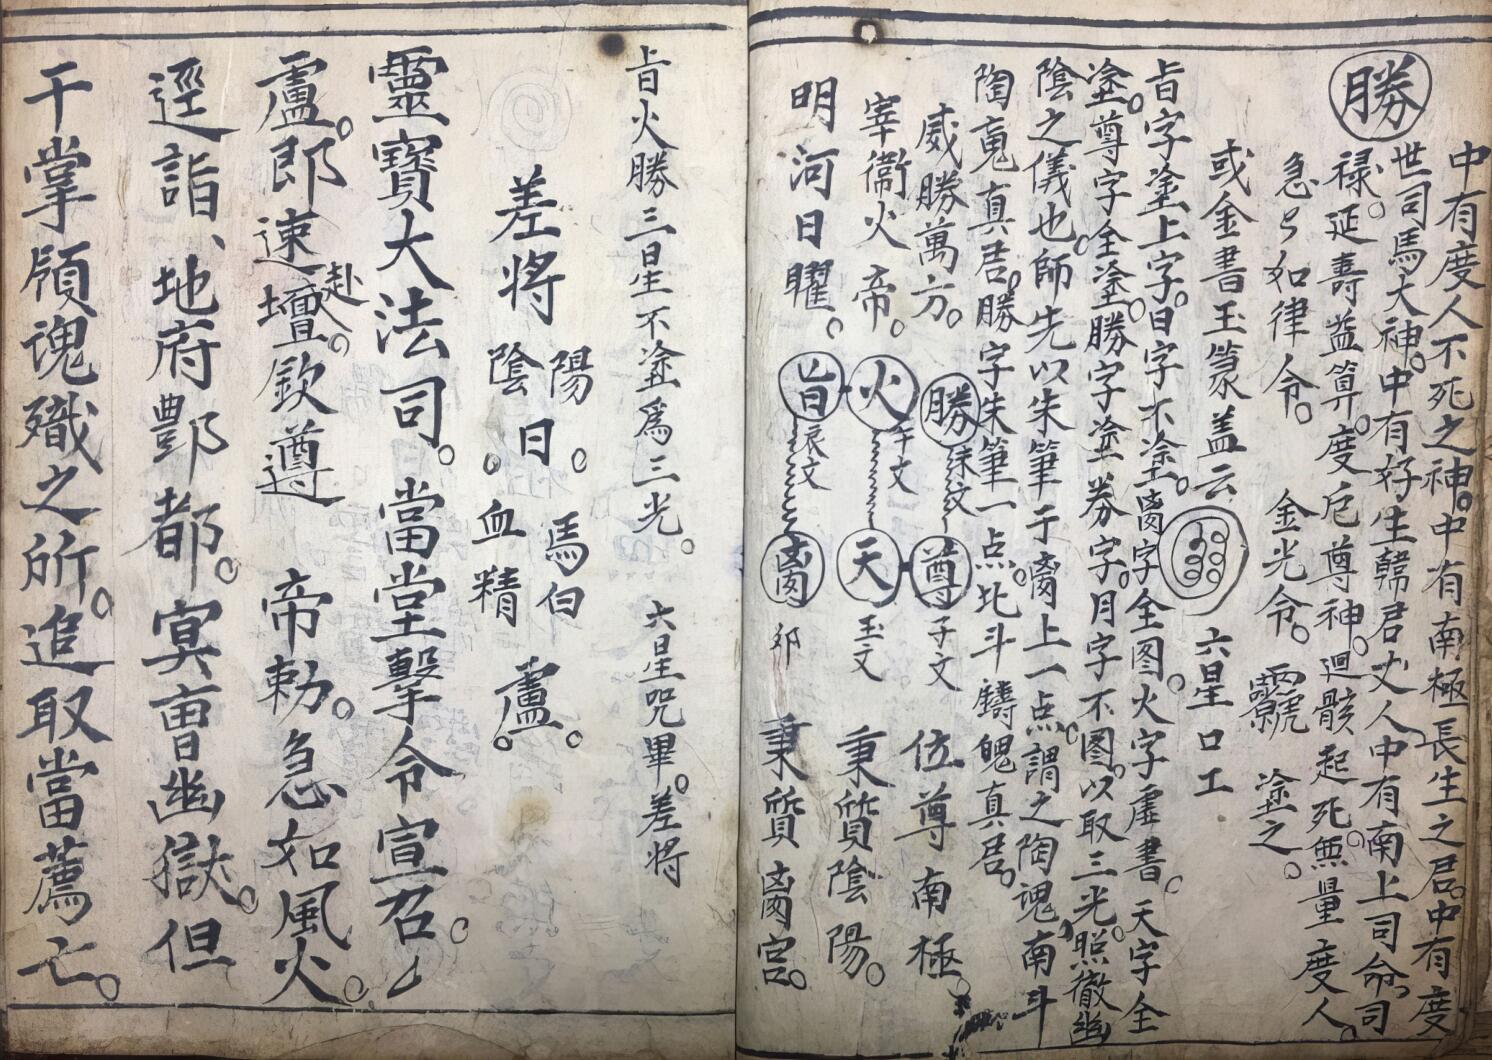 勝
中有度人不死之神。中有南極長生之君。中有度
世司馬大神。中有好生韓君丈人中有南上司命司
禄。延壽益算。度厄尊神。迴骸起死無量度人。
急急如律令。 金光令。 塗之。
或金書玉篆盖云 六星口工
旨字塗上字。日字不塗。字全图。火字虚書。天字全
塗。尊字全塗。勝字塗券字。月字不图。以取三光。照徹幽
陰之儀也。師先以朱筆于上一点。謂之陶魂南斗
陶魂真君。勝字朱筆一点。北斗鑄魄真君。
威勝萬方。 勝 尊 子文 位尊南極。
宰衛火帝。 火 午文 天 玉文 秉質陰陽。
明河日曜。 旨 辰文 秉質宮。
旨火勝三星不塗為三光。 六星咒畢。差將
差將 陽陰日。 馬白血精 盧。
靈寶大法司。當堂擊令宣召。
盧郎。速赴壇。欽遵 帝勅。急如風火。
逕詣、地府酆都。冥曹幽獄。但
干掌領魂職之所。追取當薦亡。